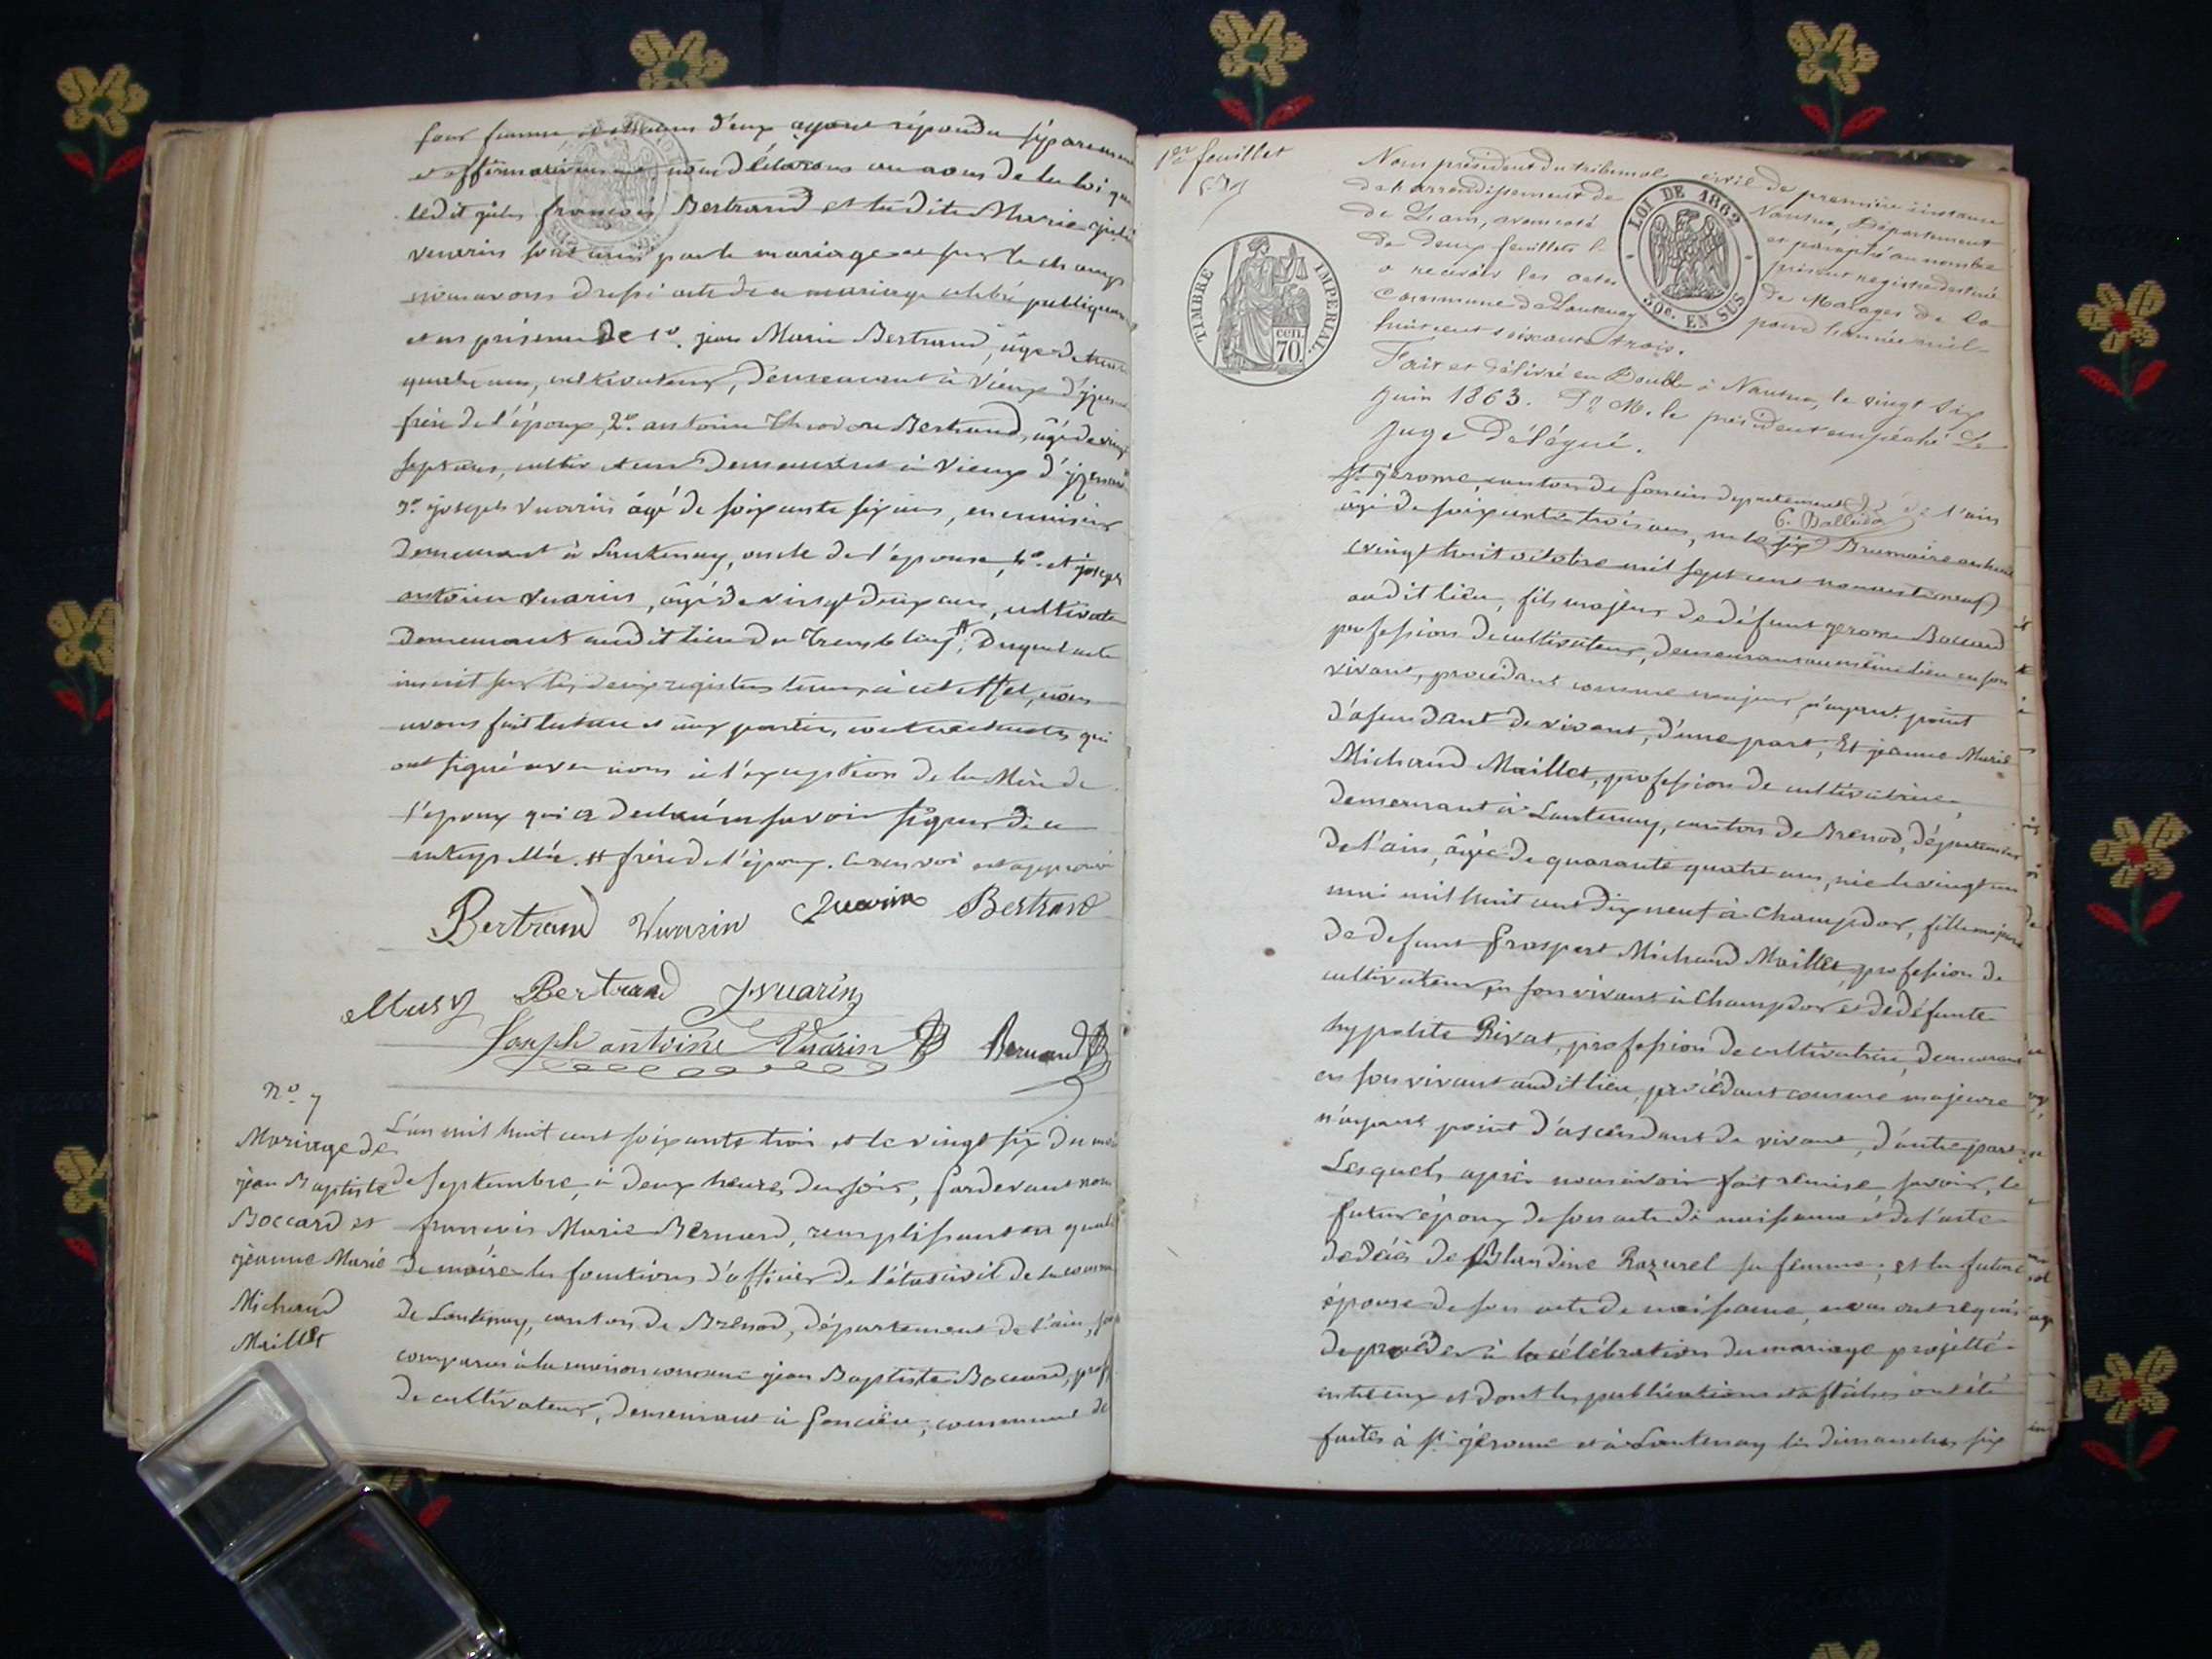 pour femme et chacun d'eux ayant répondu séparement
et affirmativement nous déclarons au nom de la loi que
ledit jules françois Bertrand et ladite Marie julie
vuarin sont unis par le mariage et sur le champ
nous avons dressé acte de ce mariage célébré publiquement
et en présence de 1o. jean Marie Bertrand, âgé de trente
quatre ans, cultivateur, demeurant à Vieux d'yzenave
frère de l'époux, 2o. antoine Theodore Bertrand, âgé de vingt
sept ans, cultivateur demeurant à Vieux d'yzenave
3o. joseph vuarin âgé de soixante six ans, menuisier
demeurant à Lantenay, oncle de l'épouse, 4o. et joseph
antoine vuarin, âgé de vingt deux ans, cultivateur
demeurant audit lieu du Tremblay #, duquel acte
inscrit sur les deux registres tenus à cet effet, nous
avons fait lecture aux parties, contractantes qui
ont signé avec nous à l'exception de la Mère de
l'époux qui a declaré ne savoir signer de ce
interpellée. # frère de l'époux. Ce renvoi est approuvé
Bertrand Vuarin Vuarin Bertrand
Musy Bertrand J. vuarin
Joseph antoine Vuarin Bernard
no. 7
Mariage de
jean Baptiste
Boccard et
jeanne Marie
Michaud
Maillet
L'an mil huit cent soixante trois et le vingt six du mois
de septembre, à deux heures du soir, pardevant nous
francois Marie Bernard, remplissant en qualité
de maire les fonctions d'officier de l'état civil de la commune
de Lantenay, canton de Brenod, département de l'ain, sont
comparus à la maison commune jean Baptiste Boccard, prof
de cultivateur, demeurant à Soncieu, commune de
1er feuillet
TIMBRE IMPERIAL.
cen.
70.
LOI DE 1862
50c. EN SUS
Nous président du tribunal civil de première instance
de l'arrondissement de Nantua, Département
de L'ain, avons coté et paraphé au nombre
de deux feuillets le présent registre destiné
a recevoir les actes de Mariages de la
Commune de Lantenay pour l'année mil-
huit cent soixante trois.
Fait et délivré en Double à Nantua, le vingt six
Juin 1863. Pr. M. le président empêché Le
Juge Délégué.
St. jerome, canton de Poncin departement de l'ain
âgé de soixante trois ans, né le six Brumaire an huit
(vingt huit octobre mil sept cent nonante neuf)
audit lieu, fils majeur de défunt gerome Boccard
profession de cultivateur, demeurant au même lieu en son
vivant, procédant comme majeur, n'ayant point
d'asendant de vivant, d'une part, Et jeanne Marie
Michaud Maillet, profession de cultivatrice
demeurant à Lantenay, canton de Brenod, département
de l'ain, âgée de quarante quatre ans, née le vingt un
mai mil huit cent dix neuf à Champdor, fille majeure
de defunt prospert Michaud Maillet, profession de
cultivateur, en son vivant à Champdor et de défunte
hypolite Rivat, profession de cultivatrice, demeurant
en son vivant audit lieu, procédant comme majeure
n'ayant point d'ascendant de vivant, d'autre part
Lesquels, après nous avoir fait remise, savoir, le
futur époux de son acte de naissance et de l'acte
de décès de Blandine Razurel sa femme, et la future
épouse de son acte de naissance, nous ont requis
de procéder à la célébration du mariage projetté
entre eux et dont les publications et affiches ont été
faites à St. jérome et à Lantenay les dimanches six